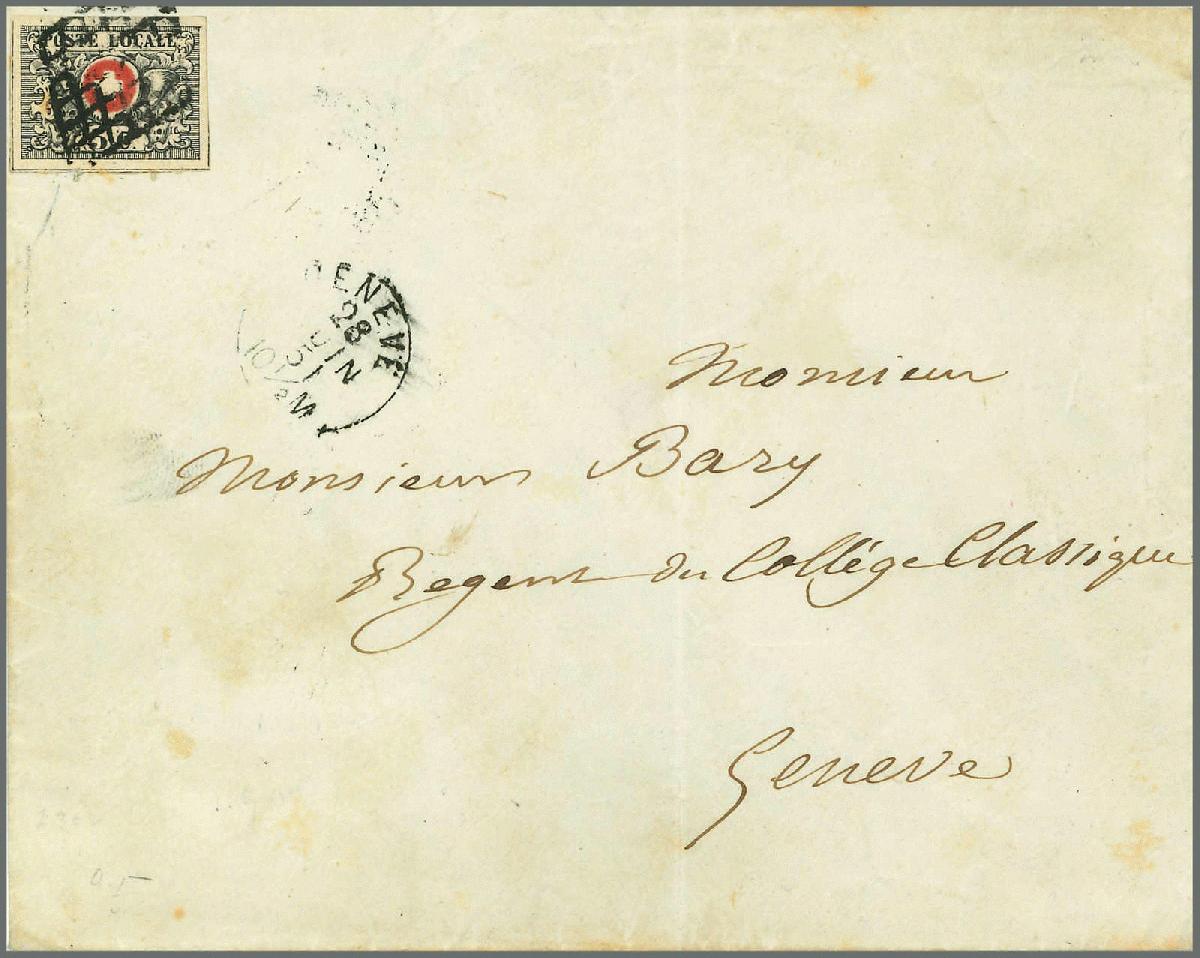 POSTE LOCALE
GENEVE
28
JUIN
10½M
Monsieur
Monsieur Bazy
Regent du Collége Classique
Geneve